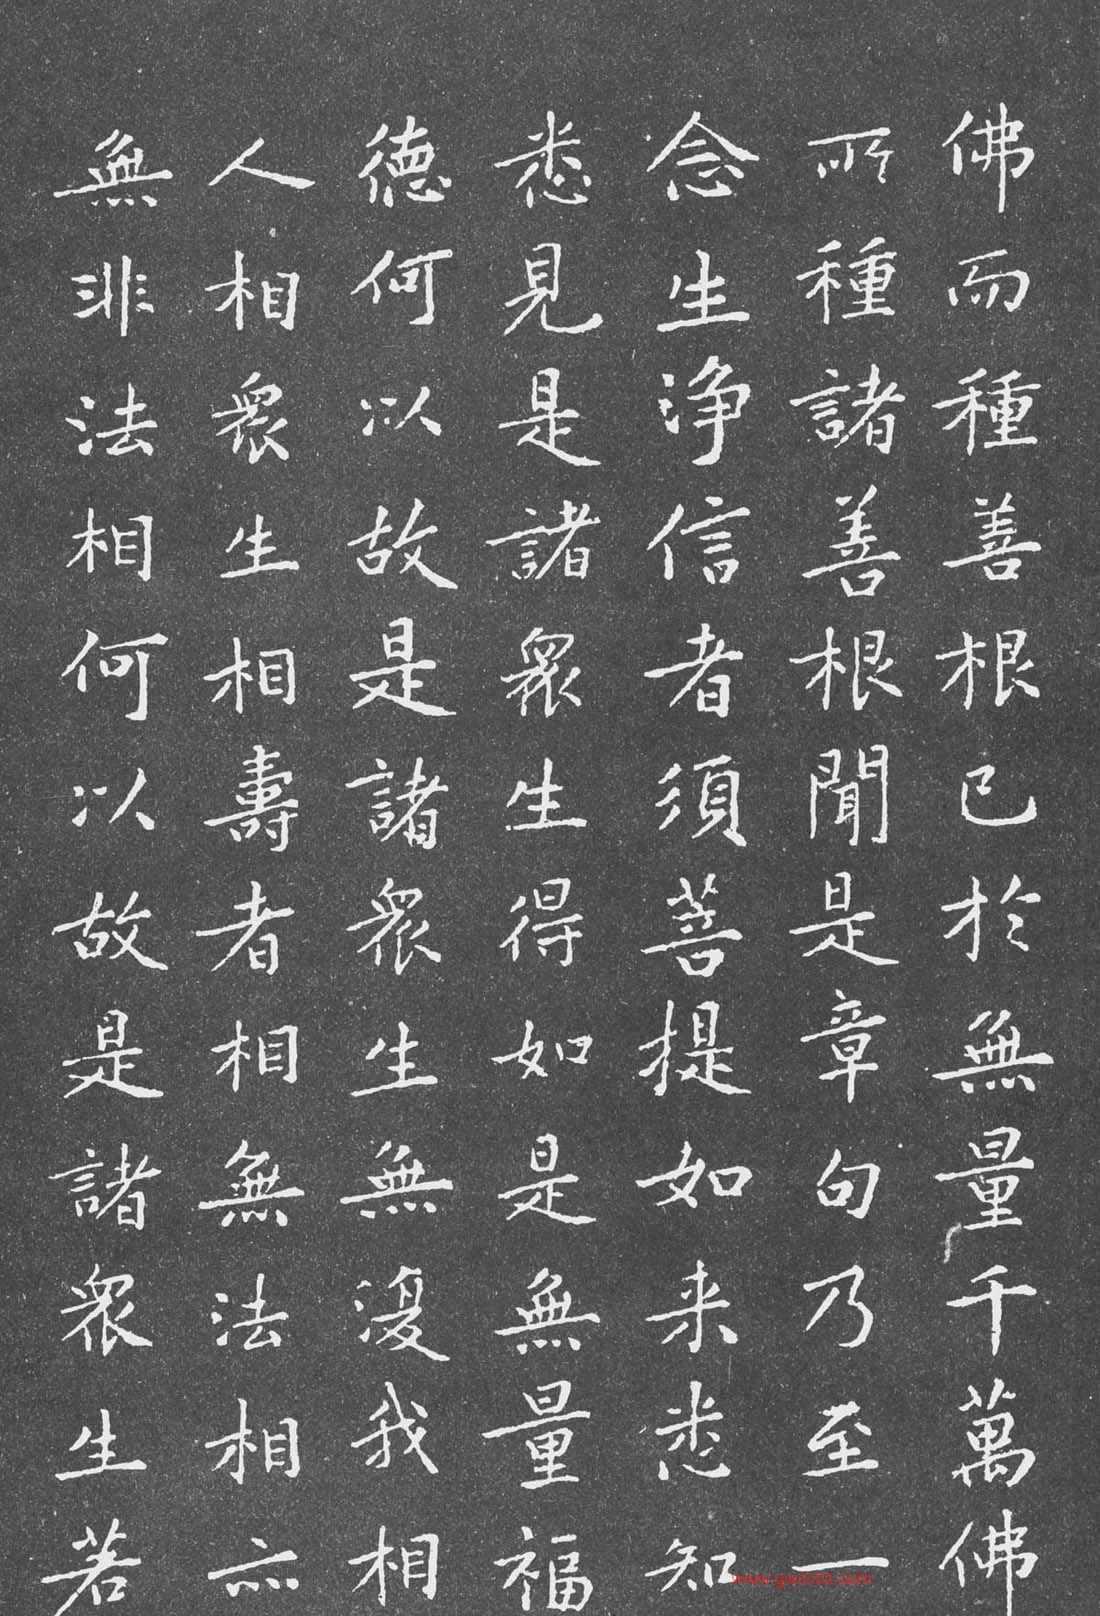 佛而種善根已於無量千萬佛
所種諸善根聞是章句乃至一
念生淨信者須菩提如来悉知
悉見是諸衆生得如是無量福
德何以故是諸衆生無復我相
人相衆生相壽者相無法相亦
無非法相何以故是諸衆生若
www.gw5000.com